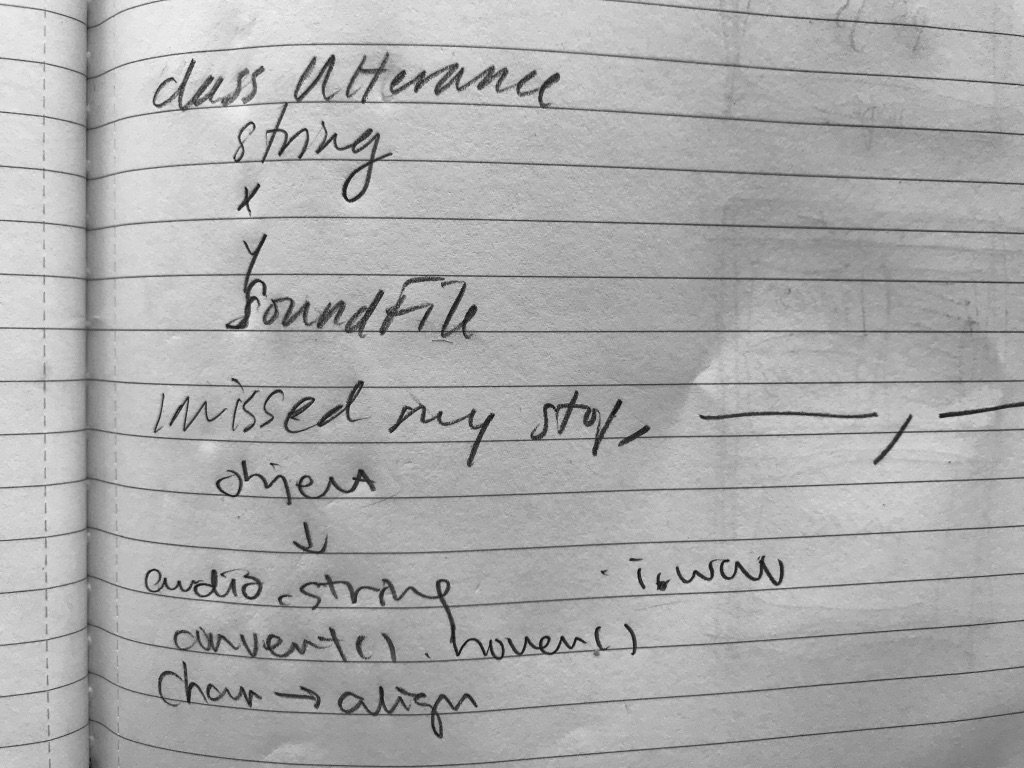 class Utterance
string
x
y
SoundFile
I missed my stop, ——, —
object
↓
audio.string i.wav
convert(). hover()
Char → align